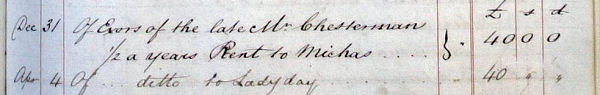 £ s d
Dec 31 Of Exors of the late Mr. Chesterman
1/2 a years Rent to Michas ..... } " 40 0 0
Apr 4 Of ... ditto to Ladyday ..... 40 " "